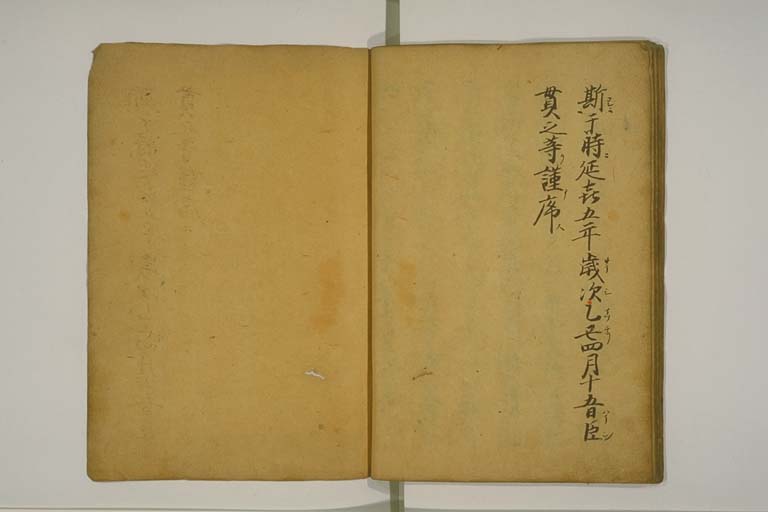 斯于時延喜五年歳次乙丑四月十五日臣
貫之等謹序